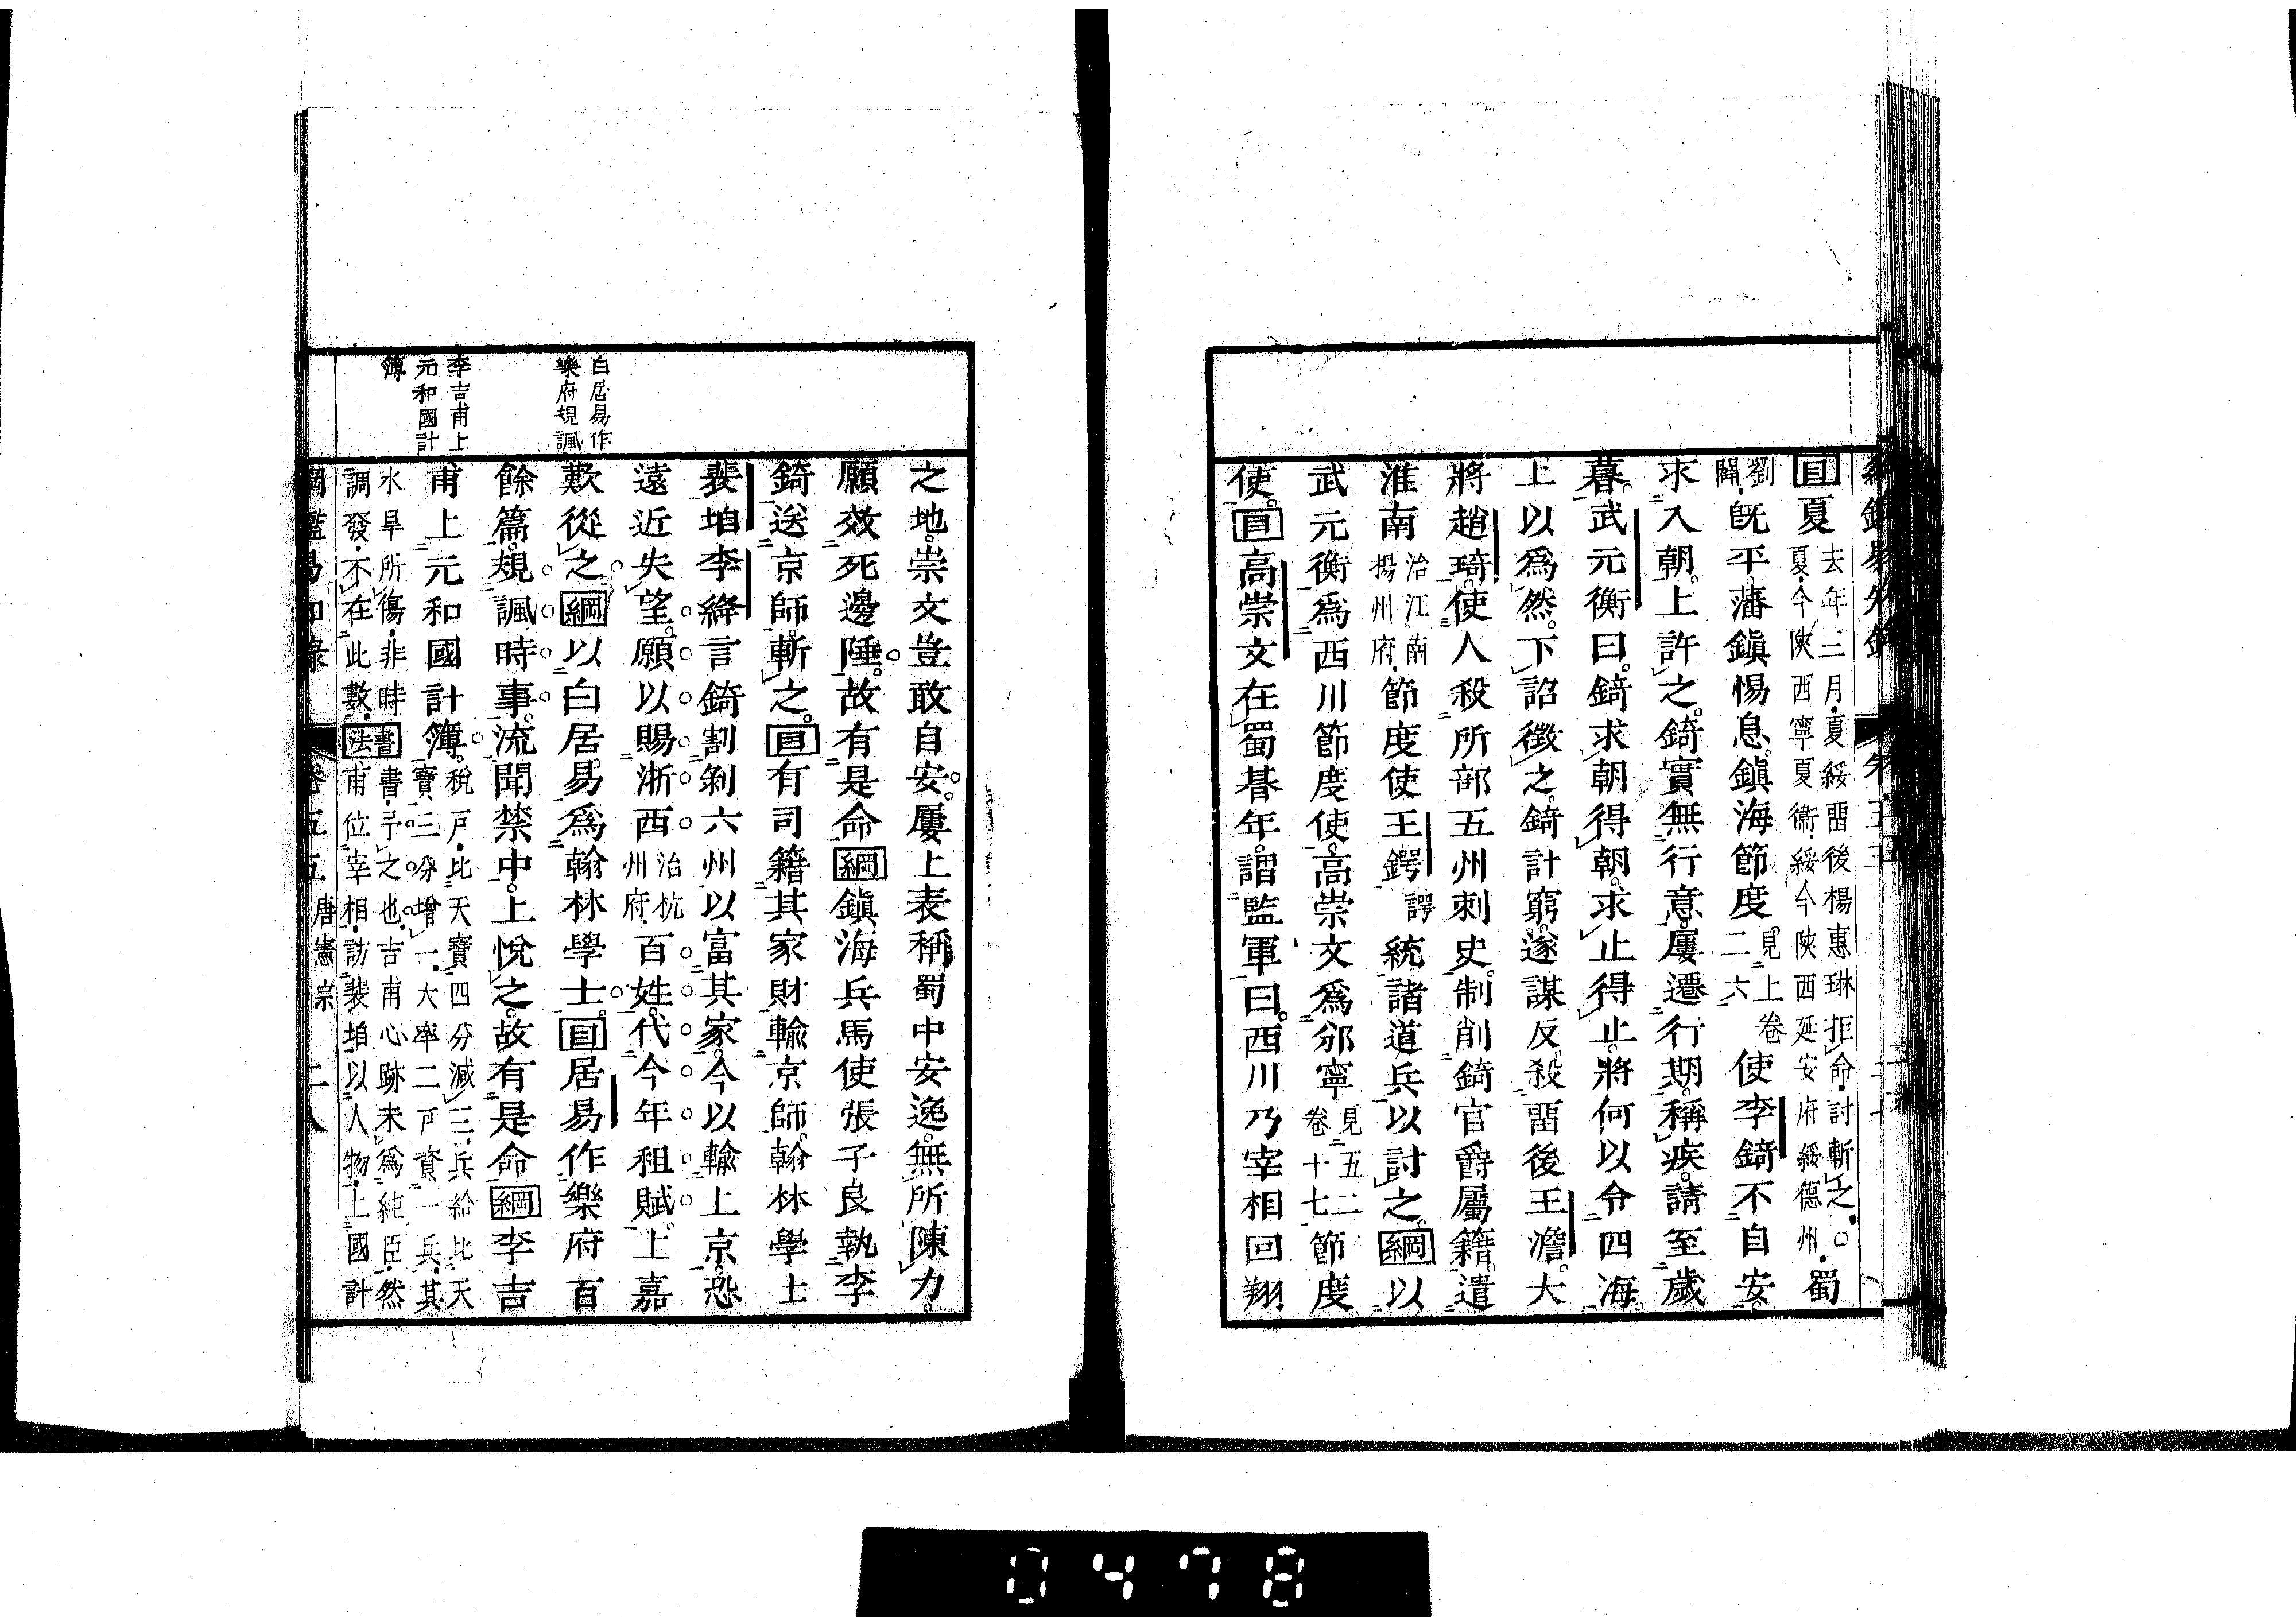 目夏去年三月夏綏畱後楊惠琳拒命討斬之○夏今陝西寧夏衞綏今陝西延安府綏德州蜀
劉闢旣平藩鎭惕息鎭海節度見上卷二六使李錡不自安
求入朝上許之錡實無行意屢遷行期稱疾請至歲
暮武元衡曰錡求朝得朝求止得止將何以令四海
上以爲然下詔徵之錡計窮遂謀反殺畱後王澹大
將趙琦使人殺所部五州刺史制削錡官爵屬籍遣
淮南治江南揚州府節度使王鍔諤統諸道兵以討之綱以
武元衡爲西川節度使高崇文爲邠寧見五二卷十七節度
使目高崇文在蜀朞年謂監軍曰西川乃宰相回翔
之地崇文豈敢自安屢上表稱蜀中安逸無所陳力
願效死邊陲故有是命綱鎭海兵馬使張子良執李
錡送京師斬之目有司籍其家財輸京師翰林學士
裴垍李絳言錡割剝六州以富其家今以輸上京恐
遠近失望願以賜浙西治杭州府百姓代今年租賦上嘉
歎從之綱以白居易爲翰林學士目居易作樂府百
餘篇規諷時事流聞禁中上悅之故有是命綱李吉
甫上元和國計簿稅戶比天寶四分減三兵給比天寶三分增一大率二戶資一兵其
水旱所傷非時調發不在此數書法書予之也吉甫心跡未爲純臣然甫位宰相訪裴垍以人物上國計
白居易作
樂府規諷
李吉甫上
元和國計
簿
綱鑑易知錄 卷五五 唐憲宗
0478